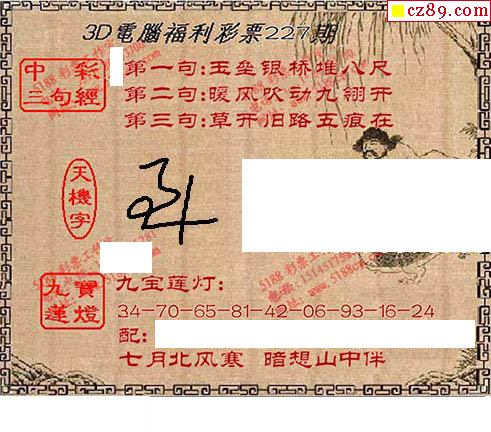 cz89.com
3D電腦福利彩票227期
中彩
三句經
第一句:玉垒银桥堆八尺
第二句:暖风吹动九翎开
第三句:草开旧路五痕在
天機字
九寶
蓮燈
九宝莲灯:
34-70-65-81-42-06-93-16-24
配:
七月北风寒 暗想山中伴